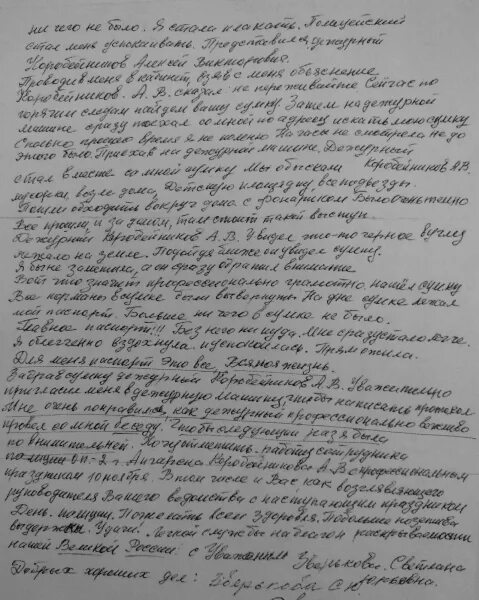 ни чего не было. Я стала плакать. Полицейский
стал меня успокаивать. Представился, дежурный
Коробейников Алексей Викторович.
Проводил меня в кабинет, взяв с меня объяснение
Коробейников. А.В. сказал: не переживайте Сейчас по
горячим следам найдем вашу сумку Затем на дежурной
машине сразу поехал со мной по адресу искать мою сумку
Сколько прошло время я не помню На часы не смотрела не до
этого было. Приехав на дежурной машине. Дежурный
стал вместе со мной сумку Мы обыскали Коробейников А.В.
мусорки, возле дома, Детскую площадку, все подъезды.
Пошли обходить вокруг дома с фонариком Было очень темно
Все прошли, и за домом, там стоит такой выступ.
Дежурный Коробейников А.В. Увидел что-то черное в углу
лежало на земле. Подойдя ближе он увидел сумку.
Я бы не заметила, а он сразу обратил внимание
Вот что значит профессионально грамотно, нашел сумку
Все карманы в сумке были вывернуты На дне сумки лежал
мой паспорт. Больше ни чего в сумке не было.
Главное паспорт!!! Без него ни куда. Мне сразу стало легче.
Я облегченно вздохнула и успокоилась. Прям ожила.
Для меня паспорт это все. Вся моя жизнь.
Забрав сумку дежурный Коробейников А.В. Уважительно
пригласил меня в дежурную машину, чтобы написать протокол
Мне очень понравился, как дежурный профессионально вежливо
провел со мной беседу. Чтобы следующий раз я была
по внимательней.
полиции ОП-2 г. Ангарска Коробейникова А.В с профессиональным
праздником 10 ноября. В том числе и Вас как возглавляющего
руководителя Вашего ведомства с наступающим праздником
День. полиции. Пожелать всем Здоровья. Побольше позитива
выдержки. Удачи! Легкой службы на благо
нашей Великой России. с Уважением Уварькова. Светлана
Юрьевна.
Добрых хороших дел: